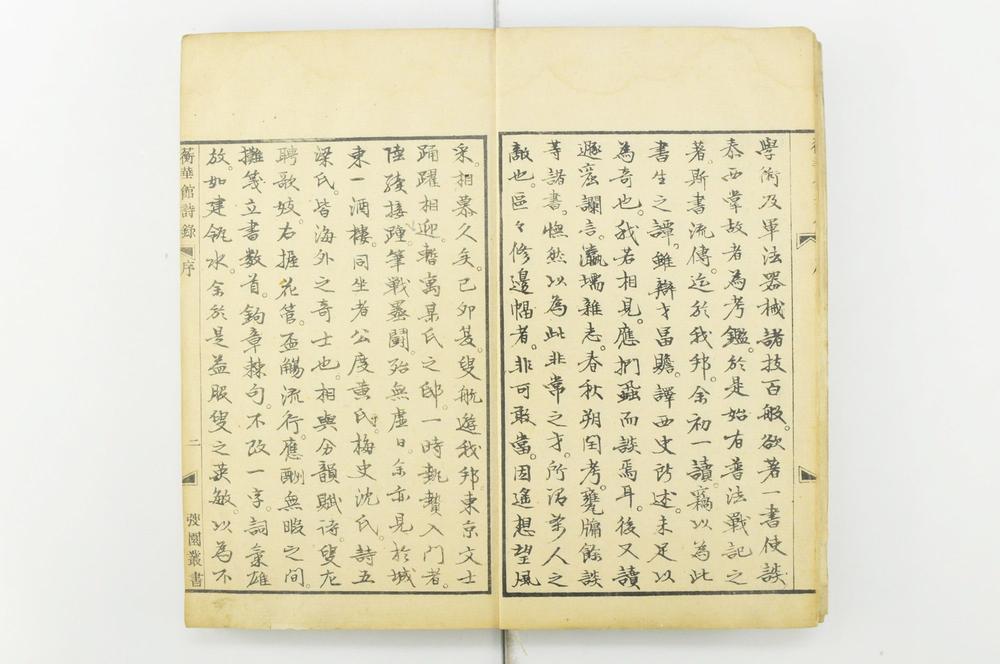 學術及軍法器械諸技百般。欲著一書使談
泰西掌故者為考鑑。於是始有普法戰記之
著。斯書流傳迄於我邦。余初一讀。竊以為此
書生之譚。雖辯才富贍。譯西史所述。未足以
為奇也。我若相見。應捫蝨而談焉耳。後又讀
遯窟讕言。瀛壖雜志。春秋朔閏考。甕牖餘談
等諸書。憮然以為此非常之才。所謂萬人之
敵也。區々修邊幅者。非可敢當。因遙想望風
采。相慕久矣。己卯夏叟航遊我邦東京文士
踊躍相迎。暫寓某氏之邸。一時執贄入門者。
陸續接踵。筆戰墨鬪。殆無虛日。余亦見於城
東一酒樓。同坐者公度黃氏。梅史沈氏。詩五
梁氏。皆海外之奇士也。相與分韻賦詩。叟左
聘歌妓。右握花管。盃觴流行。應酬無暇之間。
攤箋立書數首。鉤章棘句。不改一字。詞氣雄
放。如建瓴水。余於是益服叟之英敏。以為不
蘅華館詩錄 序 二 弢園叢書